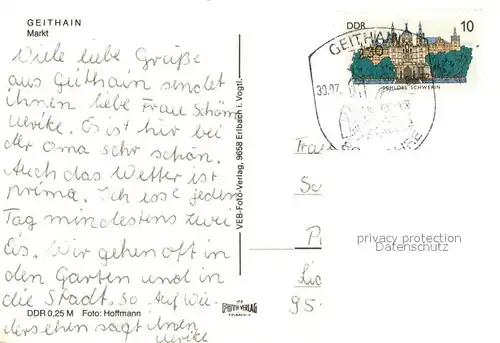 GEITHAIN
Markt
Viele liebe Grüße
aus Geithain sendet
ihnen liebe Frau Schöm
Ulrike. Es ist hir bei
der Oma sehr schön.
Auch das Wetter ist
prima. Ich esse jeden
Tag mindestens zwei
Eis. Wir gehen oft in
den Garten und in
die Stadt. So Auf Wie
dersehen sagt ihnen
Ulrike
DDR 0,25 M Foto: Hoffmann
VEB-Foto-Verlag, 9658 Erlbach i. Vogtl.
FOTO VERLAG
ERLBACH
DDR
10
SCHLOSS SCHWERIN
GEITHAIN
30.07.
JAHRE
Frau
Sc
P
95
privacy protection
Datenschutz